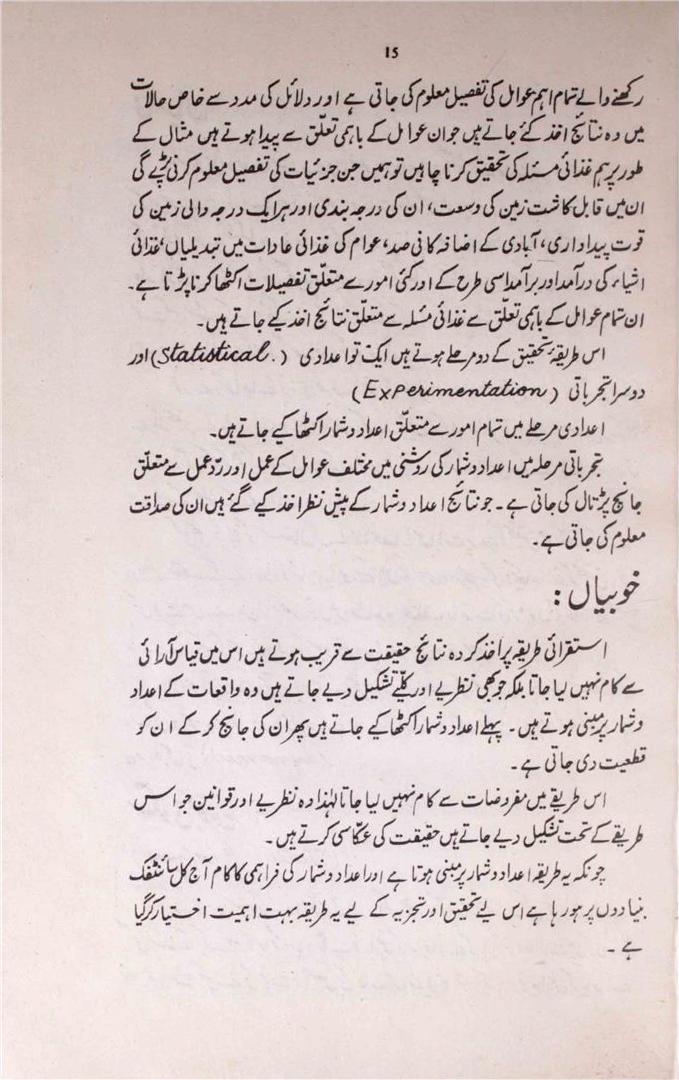 15
رکھنے والے تمام اہم عوامل کی تفصیل معلوم کی جاتی ہے اور دلائل کی مدد سے خاص حالات
میں وہ نتائج اخذ کئے جاتے ہیں جو ان عوامل کے باہمی تعلّق سے پیدا ہوتے ہیں مثال کے
طور پر ہم غذائی مسئلہ کی تحقیق کرنا چاہیں تو ہمیں جن جزئیات کی تفصیل معلوم کرنی پڑے گی
ان میں قابل کاشت زمین کی وسعت، ان کی درجہ بندی اور ہر ایک درجہ والی زمین کی
قوت پیداواری، آبادی کے اضافہ کا فی صد، عوام کی غذائی عادات میں تبدیلیاں، غذائی
اشیاء کی درآمد اور برآمد اسی طرح کے اور کئی امور سے متعلّق تفصیلات اکٹھا کرنا پڑتا ہے۔
ان تمام عوامل کے باہمی تعلّق سے غذائی مسئلہ سے متعلّق نتائج اخذ کیے جاتے ہیں۔
اس طریقۂ تحقیق کے دو مرحلے ہوتے ہیں ایک تو اعدادی (Statistical.) اور
دوسرا تجرباتی (Experimentation)
اعدادی مرحلے میں تمام امور سے متعلّق اعداد و شمار اکٹھا کیے جاتے ہیں۔
تجرباتی مرحلہ میں اعداد و شمار کی روشنی میں مختلف عوامل کے عمل اور ردّ عمل سے متعلّق
جانچ پڑتال کی جاتی ہے۔ جو نتائج اعداد و شمار کے پیش نظر اخذ کیے گئے ہیں ان کی صداقت
معلوم کی جاتی ہے۔
خوبیاں :
استقرائی طریقہ پر اخذ کردہ نتائج حقیقت سے قریب ہوتے ہیں اس میں قیاس آرائی
سے کام نہیں لیا جاتا بلکہ جو بھی نظریے اور کلّیے تشکیل دیے جاتے ہیں وہ واقعات کے اعداد
و شمار پر مبنی ہوتے ہیں۔ پہلے اعداد و شمار اکٹھا کیے جاتے ہیں پھر ان کی جانچ کر کے ان کو
قطعیت دی جاتی ہے۔
اس طریقے میں مفروضات سے کام نہیں لیا جاتا لہٰذا وہ نظریے اور قوانین جو اس
طریقے کے تحت تشکیل دیے جاتے ہیں حقیقت کی عکّاسی کرتے ہیں۔
چونکہ یہ طریقہ اعداد و شمار پر مبنی ہوتا ہے اور اعداد و شمار کی فراہمی کا کام آج کل سائنٹفک
بنیادوں پر ہو رہا ہے اس لیے تحقیق اور تجزیہ کے لیے یہ طریقہ بہت اہمیت اختیار کر گیا
ہے۔